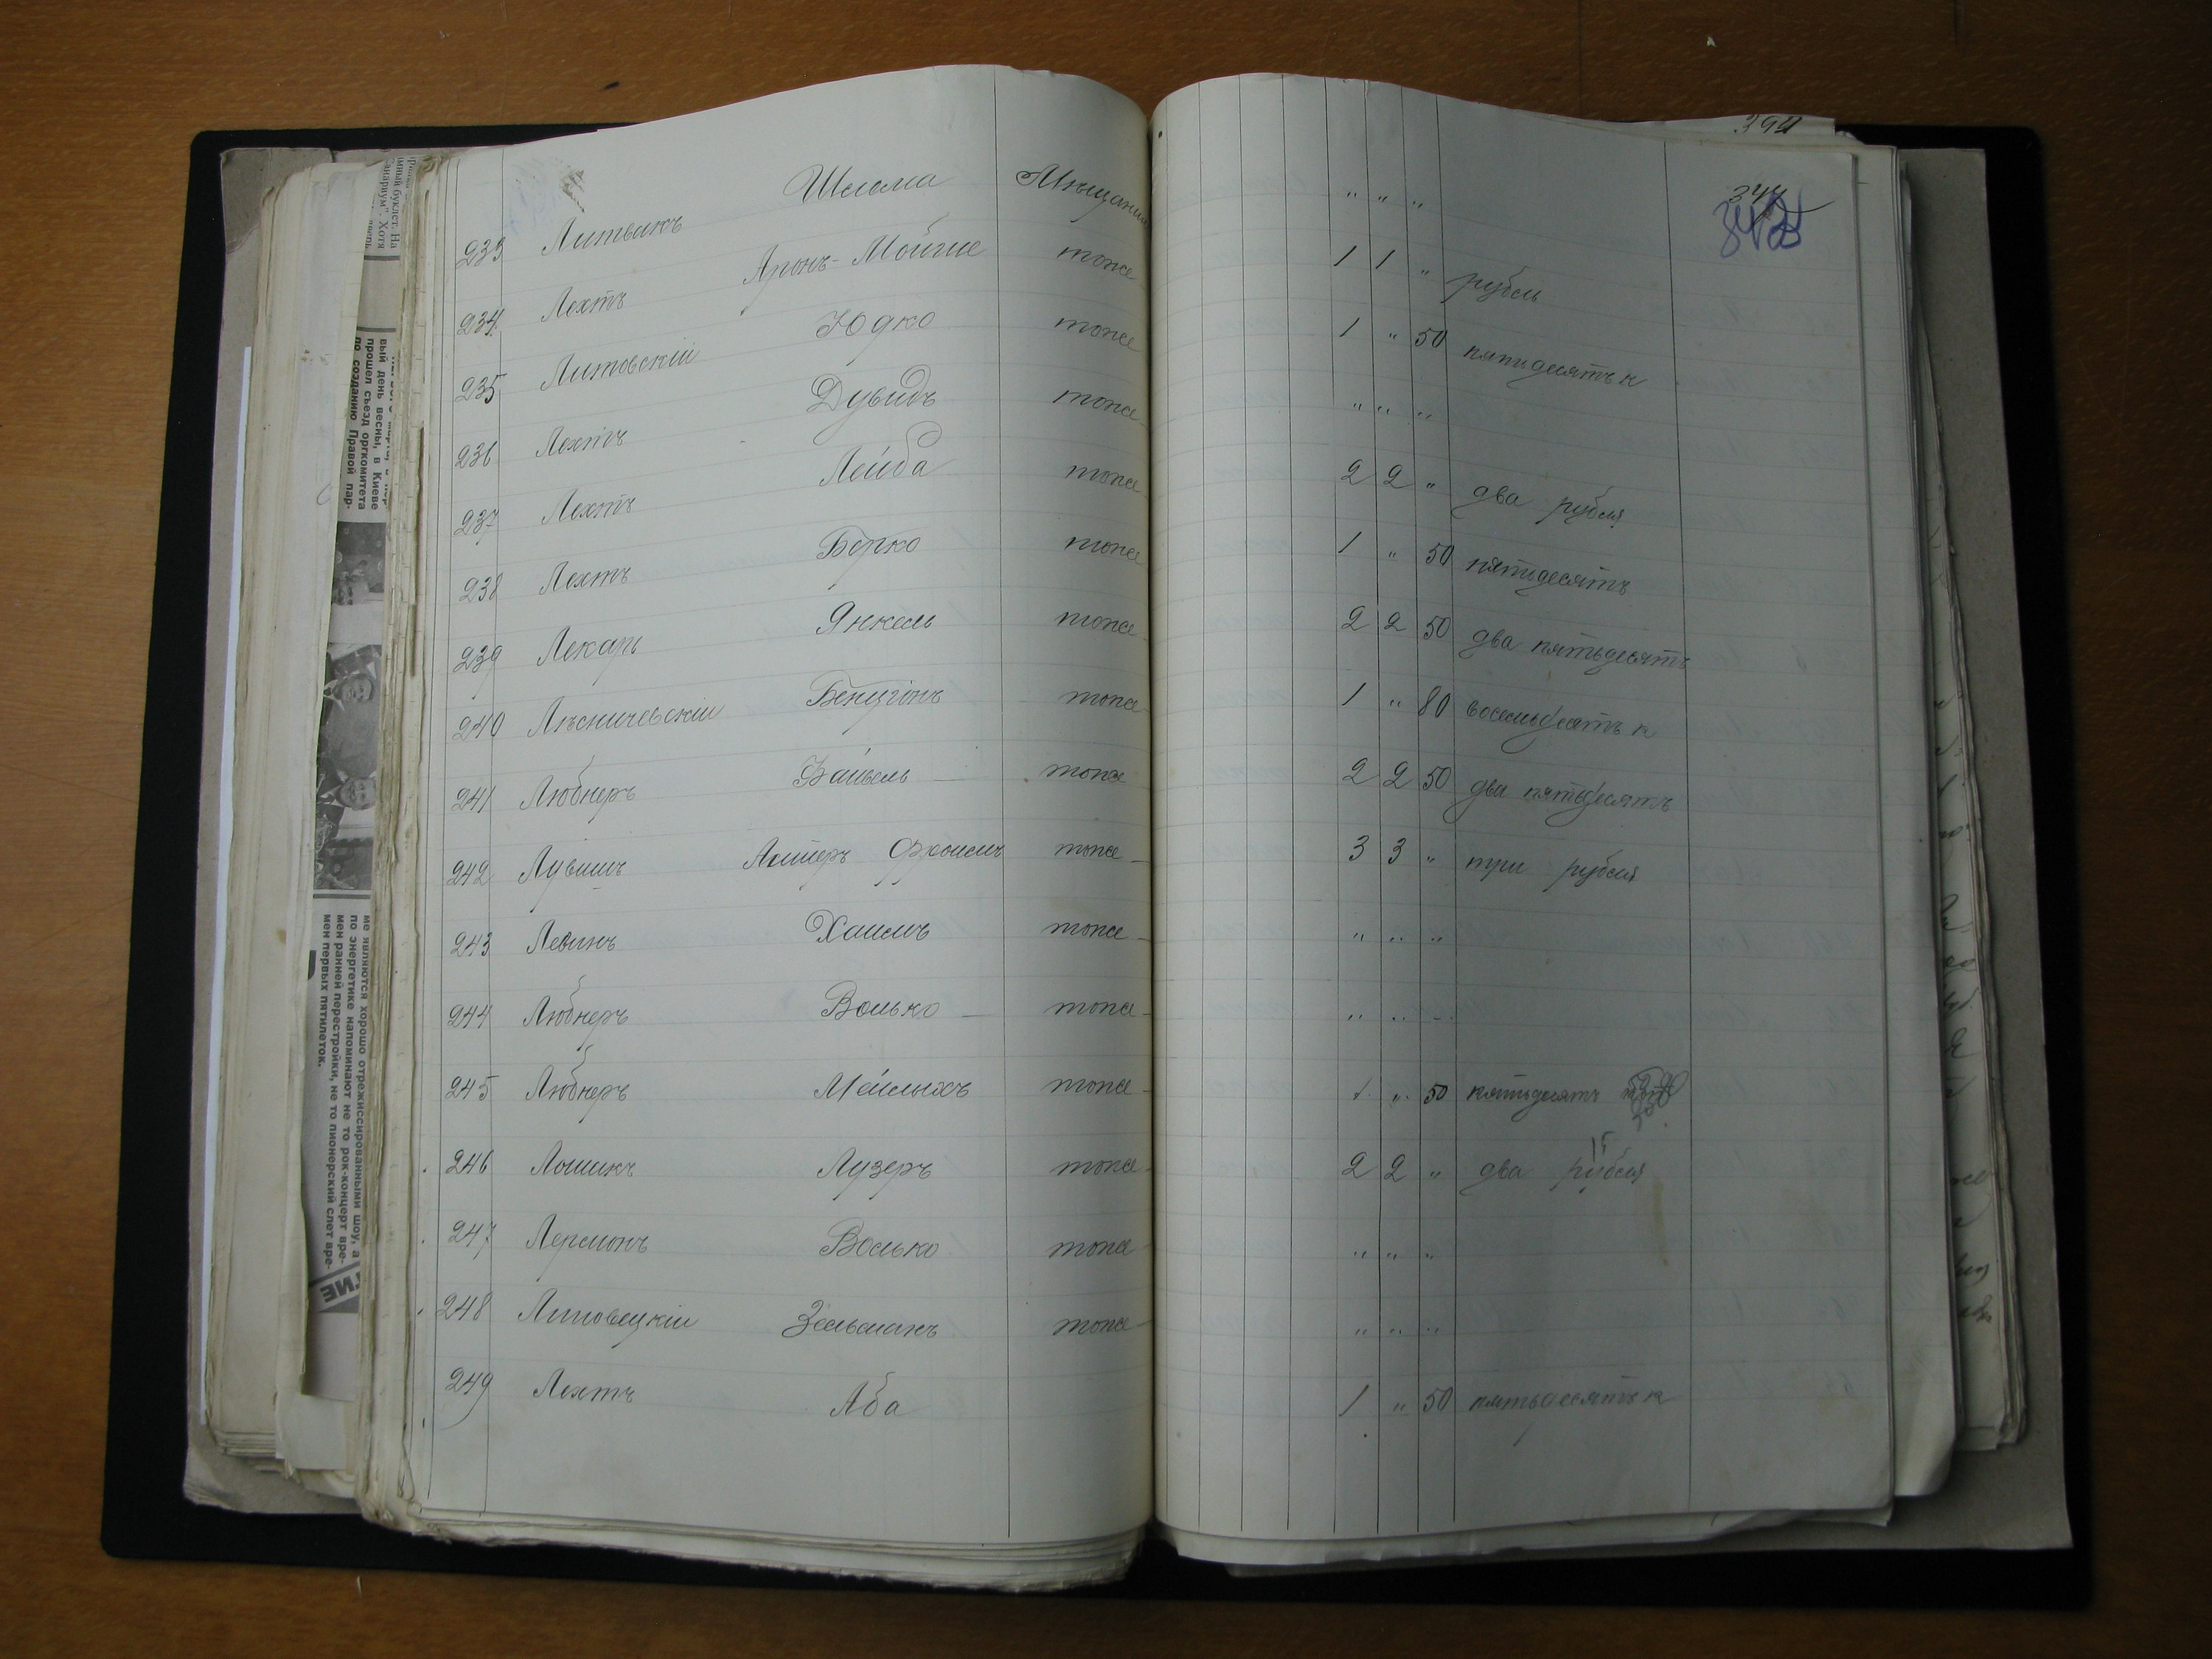 394
344
233 Литвикъ Шлома Мѣщанинъ " " "
234 Лехтъ Аронъ-Мойше тоже 1 1 " рубль
235 Литовскій Юдко тоже 1 " 50 пятидесятъ к
236 Лехтъ Дувидъ тоже " " "
237 Лехтъ Лейба тоже 2 2 " два рубля
238 Лехтъ Берко тоже 1 " 50 пятьдесятъ
239 Лекарь Янкель тоже 2 2 50 два пятьдесятъ
240 Лѣсничевскій Бенціонъ тоже 1 " 80 восемьдесятъ к
241 Любнеръ Файвель тоже 2 2 50 два пятьдесятъ
242 Лувишъ Алтеръ Фроимъ тоже 3 3 " три рубля
243 Левинъ Хаимъ тоже " " "
244 Любнеръ Волько тоже " " "
245 Любнеръ Мейлыхъ тоже 1 " 50 пятьдесятъ
15
246 Лошакъ Лузеръ тоже 2 2 " два рубля
247 Лермонъ Волько тоже " " "
248 Липовецкій Зельманъ тоже " " "
249 Лехтъ Аба 1 " 50 пятьдесятъ к
вый день весны, в Киеве
прошел съезд оргкомитета
по созданию Правой пар-
ме являются хорошо отрежиссированными шоу, а
по энергетике напоминают не то рок-концерт вре-
мен ранней перестройки, не то пионерский слет вре-
мен первых пятилеток.